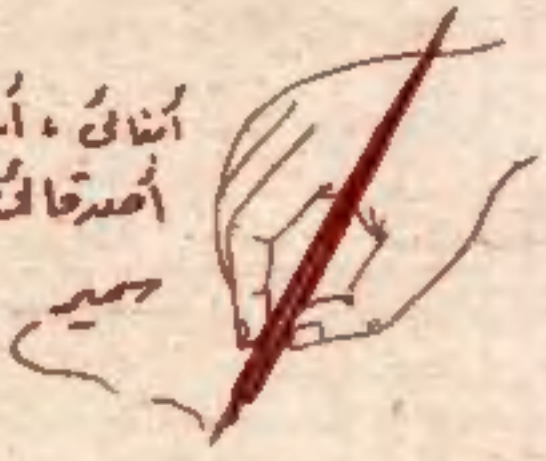 أبنائى ،
أصدقائى
سمير